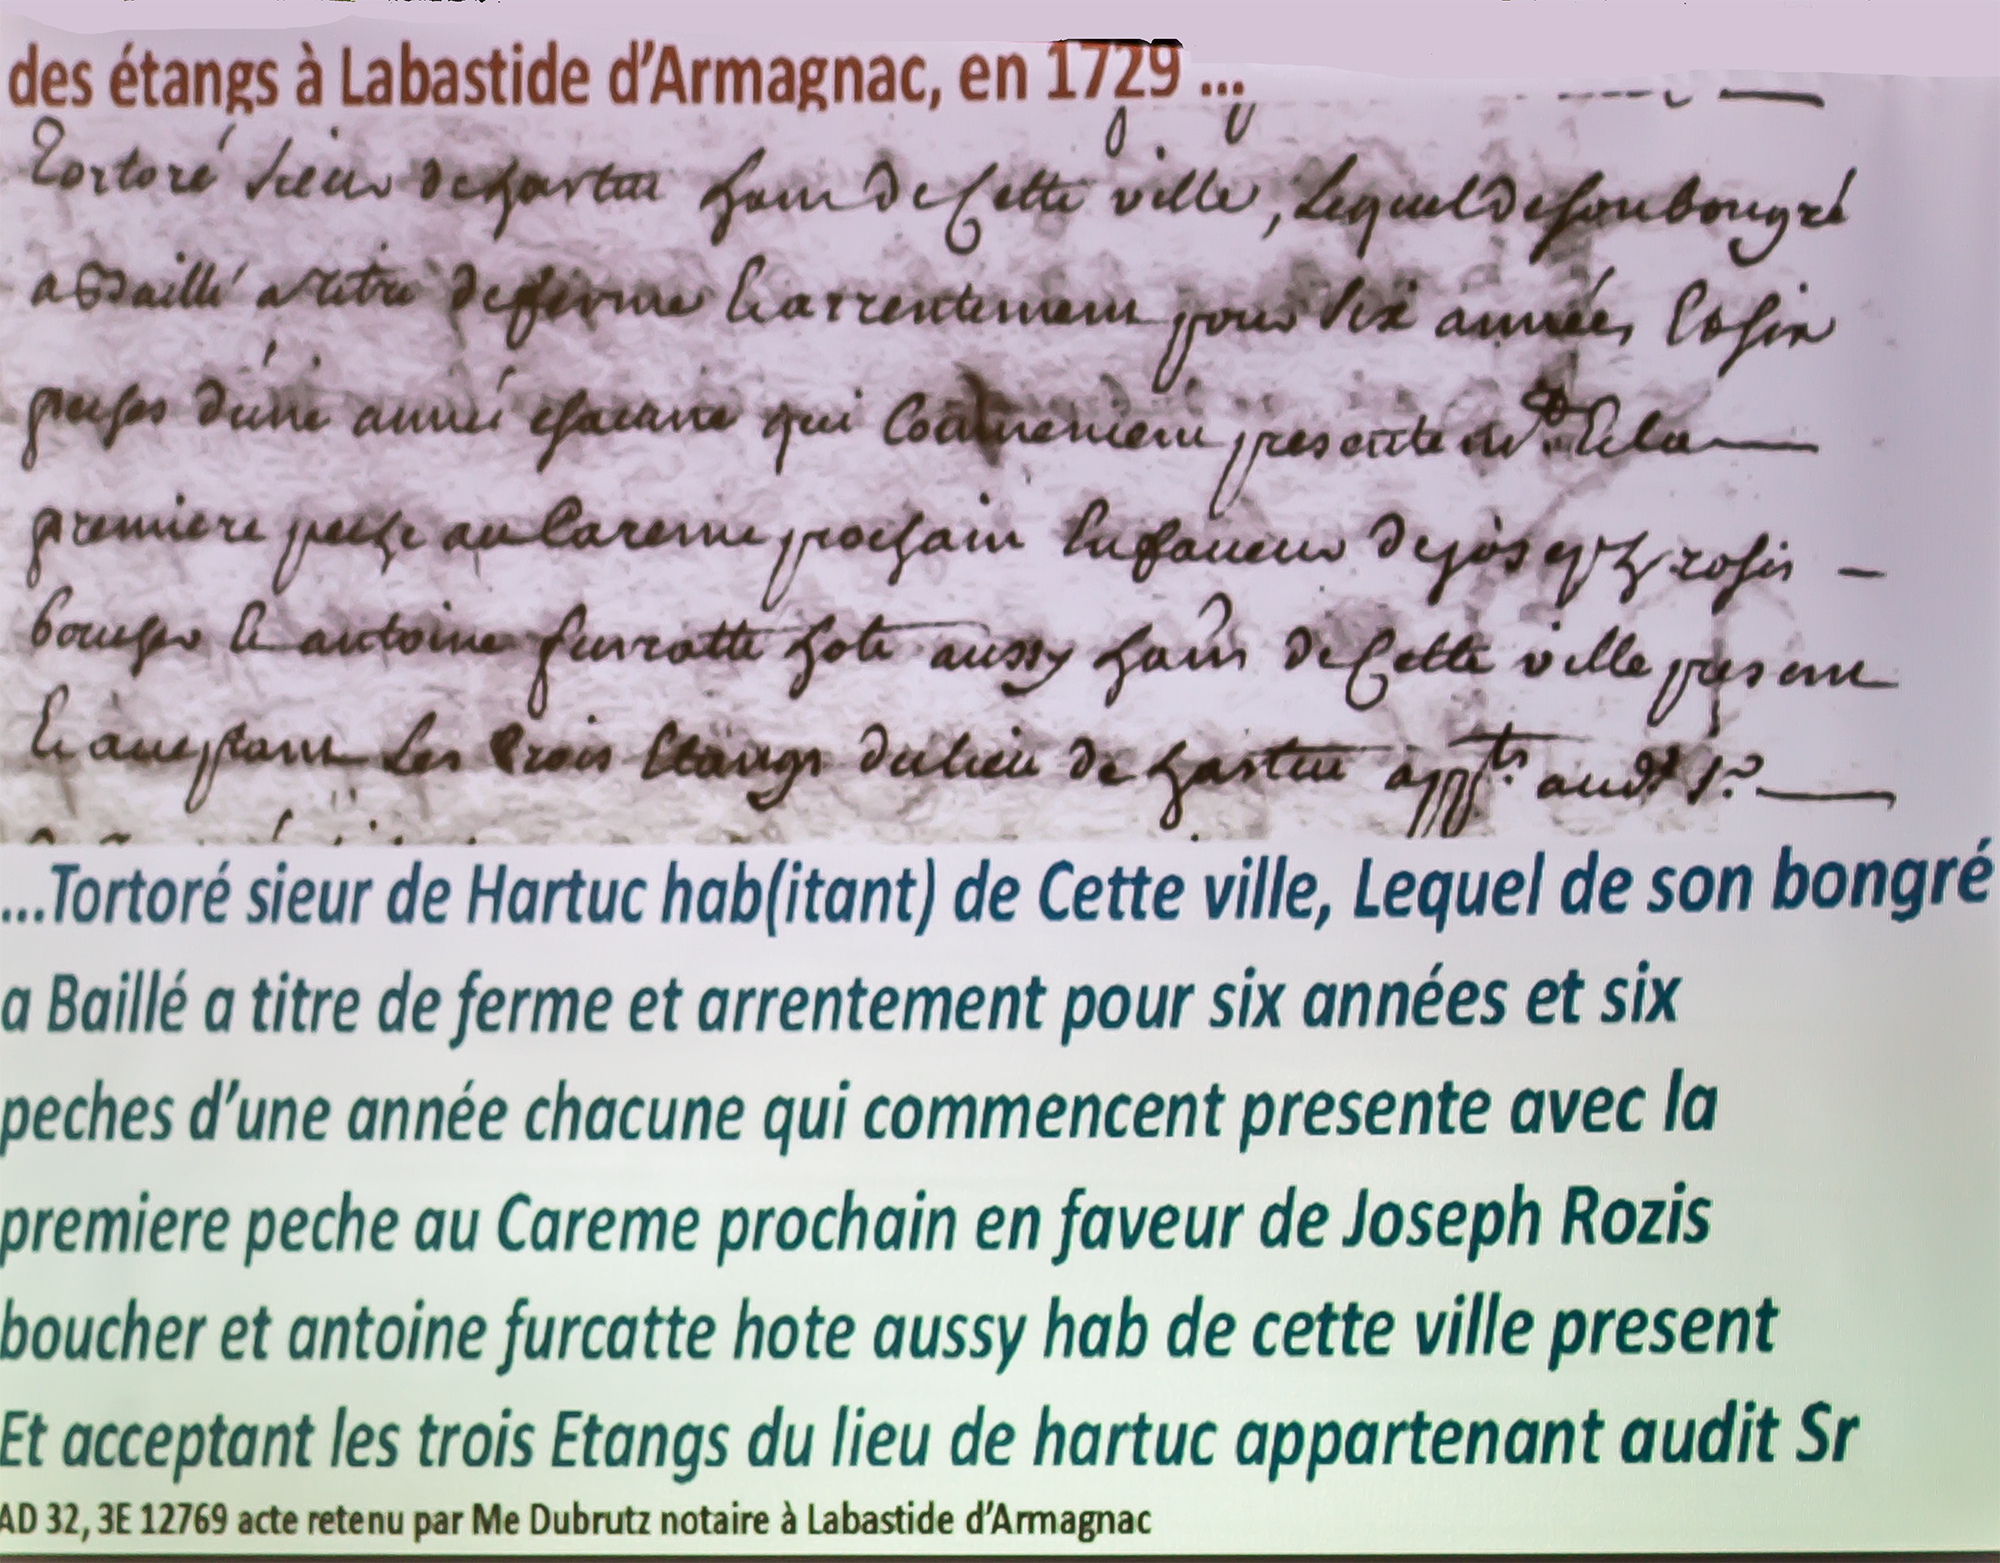 des étangs à Labastide d'Armagnac, en 1729 ...
Tortoré sieur de hartuc hau de Cette ville, Lequel de son bongré
a Baillé a titre de ferme Et arrentement pour six années Et six
peches d'une année chacune qui Commencent presente Et la
premiere peche au Careme prochain En faveur de rosis
boucher Et antoine furcatte hote aussy de Cette ville present
Et acceptant Les trois Etangs du lieu de hartuc appts audt Sr
...Tortoré sieur de Hartuc hab(itant) de Cette ville, Lequel de son bongré
a Baillé a titre de ferme et arrentement pour six années et six
peches d'une année chacune qui commencent presente avec la
premiere peche au Careme prochain en faveur de Joseph Rozis
boucher et antoine furcatte hote aussy hab de cette ville present
Et acceptant les trois Etangs du lieu de hartuc appartenant audit Sr
AD 32, 3E 12769 acte retenu par Me Dubrutz notaire à Labastide d'Armagnac